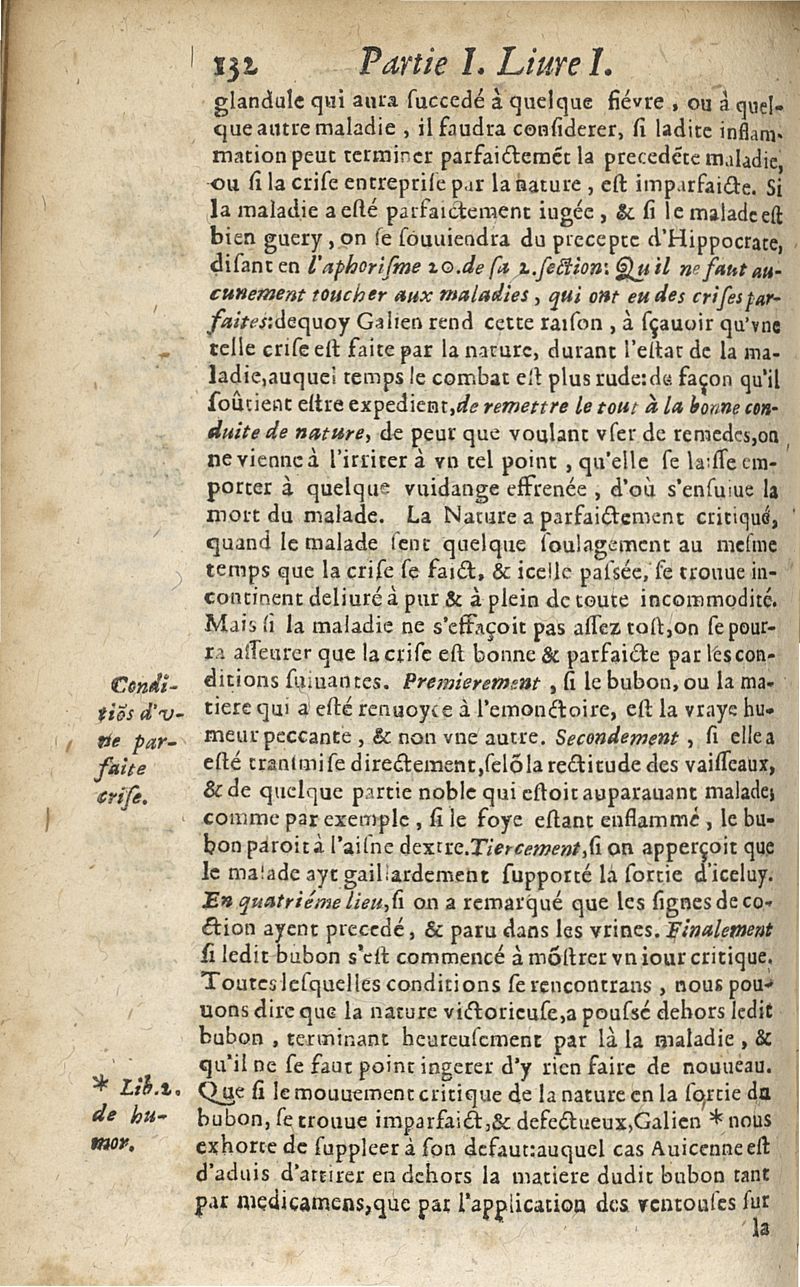 132 Partie I. Liure I.
glandule qui aura ſuccedé à quelque fiévre, ou à quel-
que autre maladie, il faudra conſiderer, ſi ladite inflam-
mation peut terminer parfaictemēt la precedēte maladie,
ou ſi la criſe entrepriſe par la nature, eſt imparfaicte. Si
la maladie a eſté parfaictement iugée, & ſi le malade eſt
bien guery, on ſe ſouuiendra du precepte d'Hippocrate,
diſant en l'aphoriſme 20. de ſa 2. ſection: Qu'il ne faut au-
cunement toucher aux maladies, qui ont eu des criſes par-
faites: dequoy Galien rend cette raiſon, à ſçauoir qu'vne
telle criſe eſt faite par la nature, durant l'eſtat de la ma-
ladie, auquel temps le combat eſt plus rude: de façon qu'il
ſoûtient eſtre expedient, de remettre le tout à la bonne con-
duite de nature, de peur que voulant vſer de remedes, on
ne vienne à l'irriter à vn tel point, qu'elle ſe laiſſe em-
porter à quelque vuidange effrenée, d'où s'enſuiue la
mort du malade. La Nature a parfaictement critiqué,
quand le malade ſent quelque ſoulagement au meſme
temps que la criſe ſe faict, & icelle paſsée, ſe trouue in-
continent deliuré à pur & à plein de toute incommodité.
Mais ſi la maladie ne s'effaçoit pas aſſez toſt, on ſe pour-
ra aſſeurer que la criſe eſt bonne & parfaicte par les con-
ditions ſuiuantes. Premierement, ſi le bubon, ou la ma-
tiere qui a eſté renuoyée à l'emonctoire, eſt la vraye hu-
meur peccante, & non vne autre. Secondement, ſi elle a
eſté tranſmiſe directement, ſelō la rectitude des vaiſſeaux,
& de quelque partie noble qui eſtoit auparauant malade;
comme par exemple, ſi le foye eſtant enflammé, le bu-
bon paroit à l'aiſne dextre. Tiercement, ſi on apperçoit que
le malade ayt gaillardement ſupporté la ſortie d'iceluy.
En quatriéme lieu, ſi on a remarqué que les ſignes de co-
ction ayent precedé, & paru dans les vrines. Finalement
ſi ledit bubon s'eſt commencé à mōſtrer vn iour critique.
Toutes leſquelles conditions ſe rencontrans, nous pou-
uons dire que la nature victorieuſe, a pouſsé dehors ledit
bubon, terminant heureuſement par là la maladie, &
qu'il ne ſe faut point ingerer d'y rien faire de nouueau.
Que ſi le mouuement critique de la nature en la ſortie du
bubon, ſe trouue imparfaict, & defectueux, Galien * nous
exhorte de ſuppleer à ſon defaut: auquel cas Auicenne eſt
d'aduis d'attirer en dehors la matiere dudit bubon tant
par medicamens, que par l'application des ventouſes ſur
la
Condi-
tiōs d'v-
ne par-
faite
criſe.
* Lib. 2.
de hu-
mor.